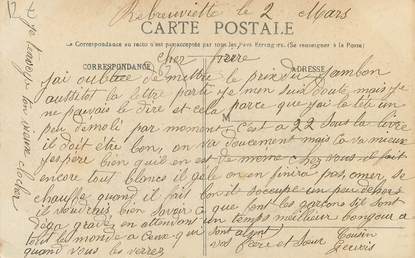 Rebreuviette le 2 Mars
CARTE POSTALE
La Correspondance au recto n'est pas acceptée par tous les Pays Étrangers. (Se renseigner à la Poste)
CORRESPONDANCE
ADRESSE
cher frere
j'ai oublier de mettre le prix du jambon
aussitot la lettre partie je men suis douté mais je
ne pouvais le dire et cela parce que j'ai la tête un
peu démoli par moment c'est a 22 sous la livre
il doit être bon, on va doucement mais ca va mieux
j'espere bien qu'il en est de meme chez vous il fait
encore tout blanc il gele on en finira pas, omer, se
chauffe quand il fait bon il s'occupe un peu depere
il voudrais bien savoir ce que font les garcons s'il sont
déja gravé, en attendant un temps meilleur bonjour a
tout le monde a ceux qui sont
quand vous les verrez vos frere et soeur Cousin
M
je
ton vieux
clocher